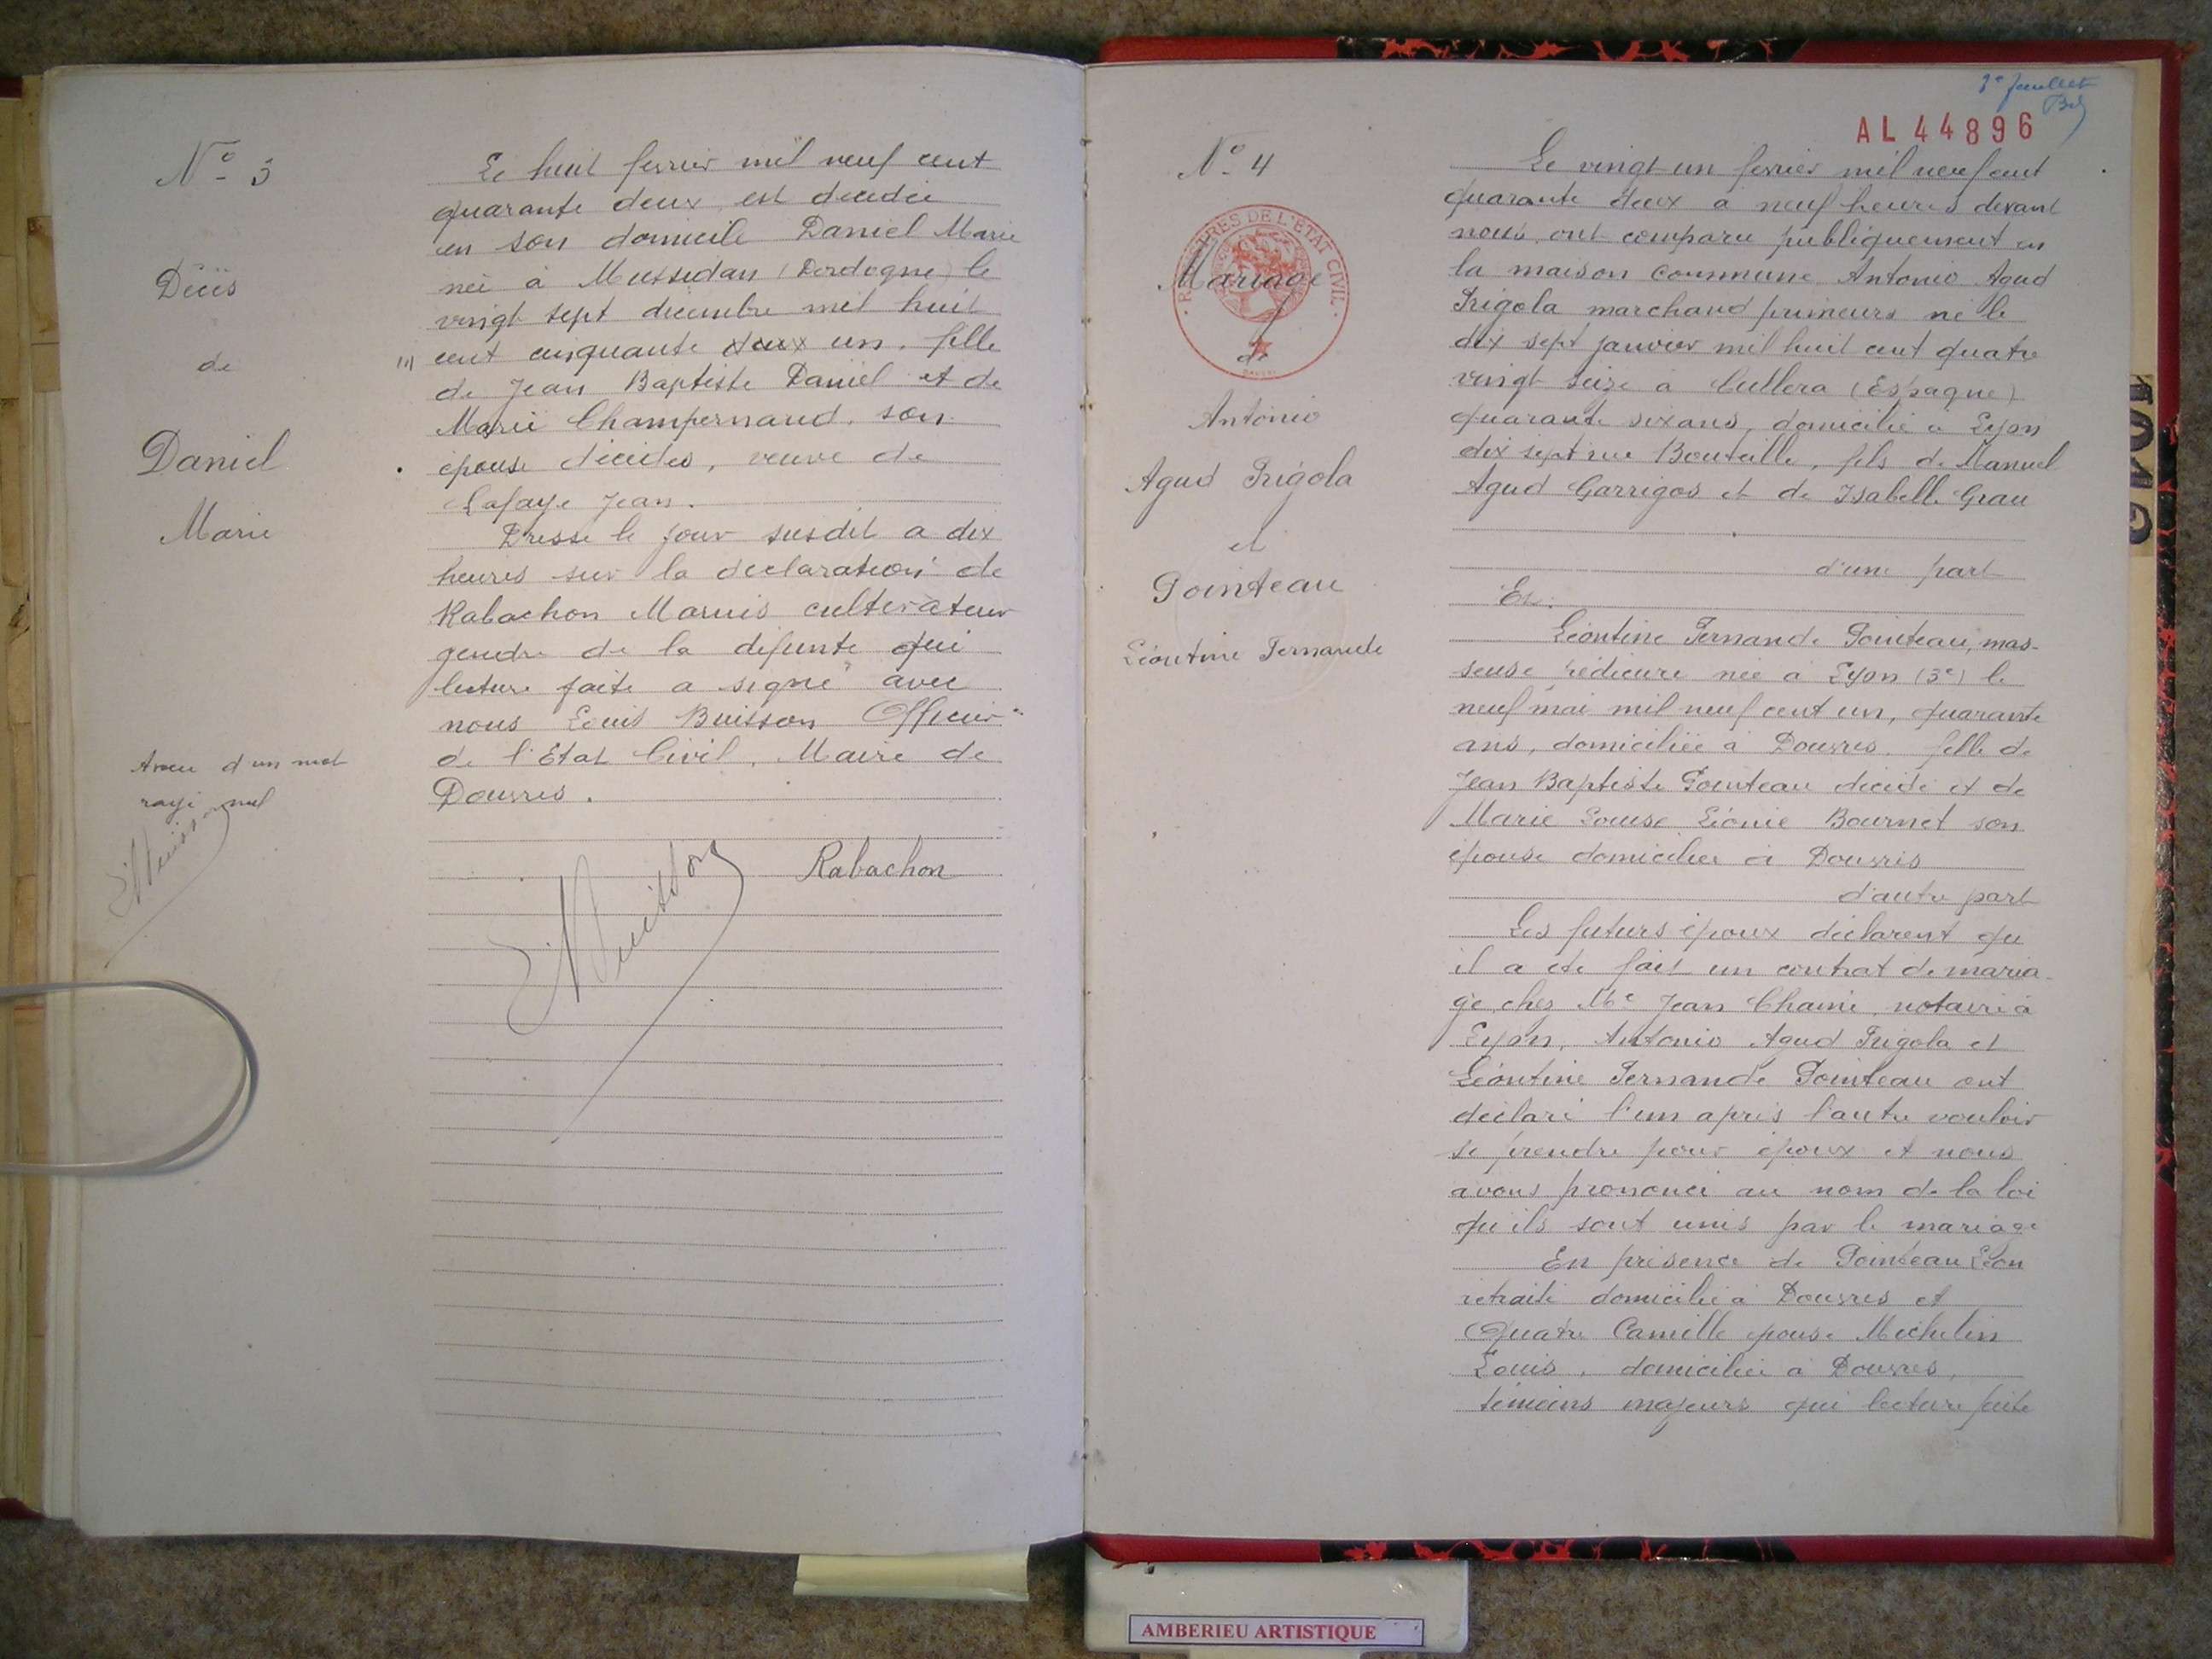 N° 3
Décès
de
Daniel
Marie
Le huit fevrier mil neuf cent
quarante deux, est décédée
en son domicile Daniel Marie
née à Mussidan (Dordogne) le
vingt sept decembre mil huit
cent cinquante deux un. fille
de Jean Baptiste Daniel et de
Marie Champernaud. son
épouse décédés, veuve de
Lafaye Jean.
Dressé le jour susdit a dix
heures sur la declaration de
Rabachon Marius cultivateur
gendre de la defunte qui
lecture faite a signé avec
nous Louis Buisson Officier
de l'Etat Civil, Maire de
Douvres.
Aveu d'un mot
rayé nul
LBuisson
LBuisson
Rabachon
3e feuillet
AL 44896
N° 4
REGISTRES DE L'ÉTAT CIVIL
Mariage
de
Antonio
Agud Frigola
et
Pointeau
Léontine Fernande
Le vingt un fevrier mil neuf cent
quarante deux à neuf heures devant
nous ont comparu publiquement en
la maison commune Antonio Agud
Frigola marchand primeurs né le
dix sept janvier mil huit cent quatre
vingt seize à Cullera (Espagne)
quarante six ans, domicilié à Lyon
dix sept rue Bouteille, fils de Manuel
Agud Garrigos et de Isabelle Grau
d'une part
Et.
Léontine Fernande Pointeau, mas-
seuse pédicure née à Lyon (3e) le
neuf mai mil neuf cent un, quarante
ans, domiciliée à Douvres. fille de
Jean Baptiste Pointeau décédé et de
Marie Louise Léonie Bournet son
épouse domiciliée à Douvres
d'autre part
Les futurs époux déclarent qu
il a été fait un contrat de maria-
ge chez Me Jean Chaine, notaire à
Lyon, Antonio Agud Frigola et
Léontine Fernande Pointeau ont
déclaré l'un après l'autre vouloir
se prendre pour époux et nous
avons prononcé au nom de la loi
qu'ils sont unis par le mariage
En présence de Pointeau Léon
retraité domicilié à Douvres et
Quatre Camille épouse Michelin
Louis, domiciliée à Douvres,
témoins majeurs qui lecture faite
AMBERIEU ARTISTIQUE